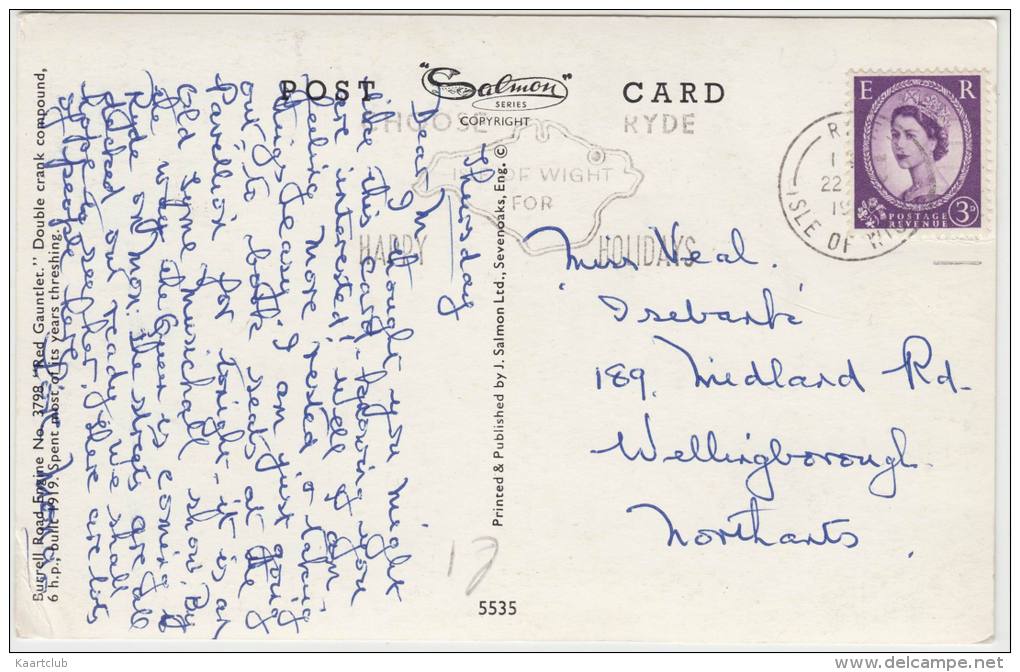 POST "Salmon" CARD
SERIES
COPYRIGHT
CHOOSE RYDE
ISLE OF WIGHT
FOR
HAPPY HOLIDAYS
E R
POSTAGE
REVENUE 3D
22
19
ISLE OF
Thursday
Dear M
I thought you might
like this card - knowing you
are interested! Well I am
feeling more rested & taking
things easy. I am just going
out to book seats at the
Pavilion for tonight - it is an
Old Tyme Musichall show. By
the way the Queen is coming to
Ryde on Mon: the streets are all
decked out ready. We shall
hope to see her, there are lots
of people here.
Miss Neal.
'Isebank'
189. Midland Rd.
Wellingborough.
Northants.
Printed & Published by J. Salmon Ltd., Sevenoaks, Eng. ©
Burrell Road Engine No. 3798 "Red Gauntlet." Double crank compound,
6 h.p., built 1919. Spent most of its years threshing.
12
5535
© Kaartclub
www.delcampe.net